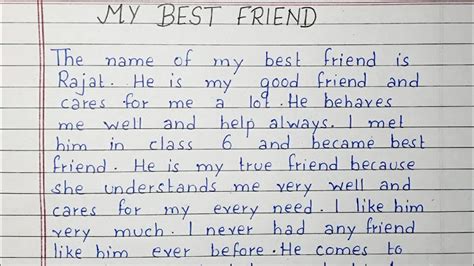 MY BEST FRIEND
The name of my best friend is
Rajat. He is my good friend and
cares for me a lot. He behaves
me well and help always. I met
him in class 6 and became best
friend. He is my true friend because
she understands me very well and
cares for my every need. I like him
very much. I never had any friend
like him ever before. He comes to